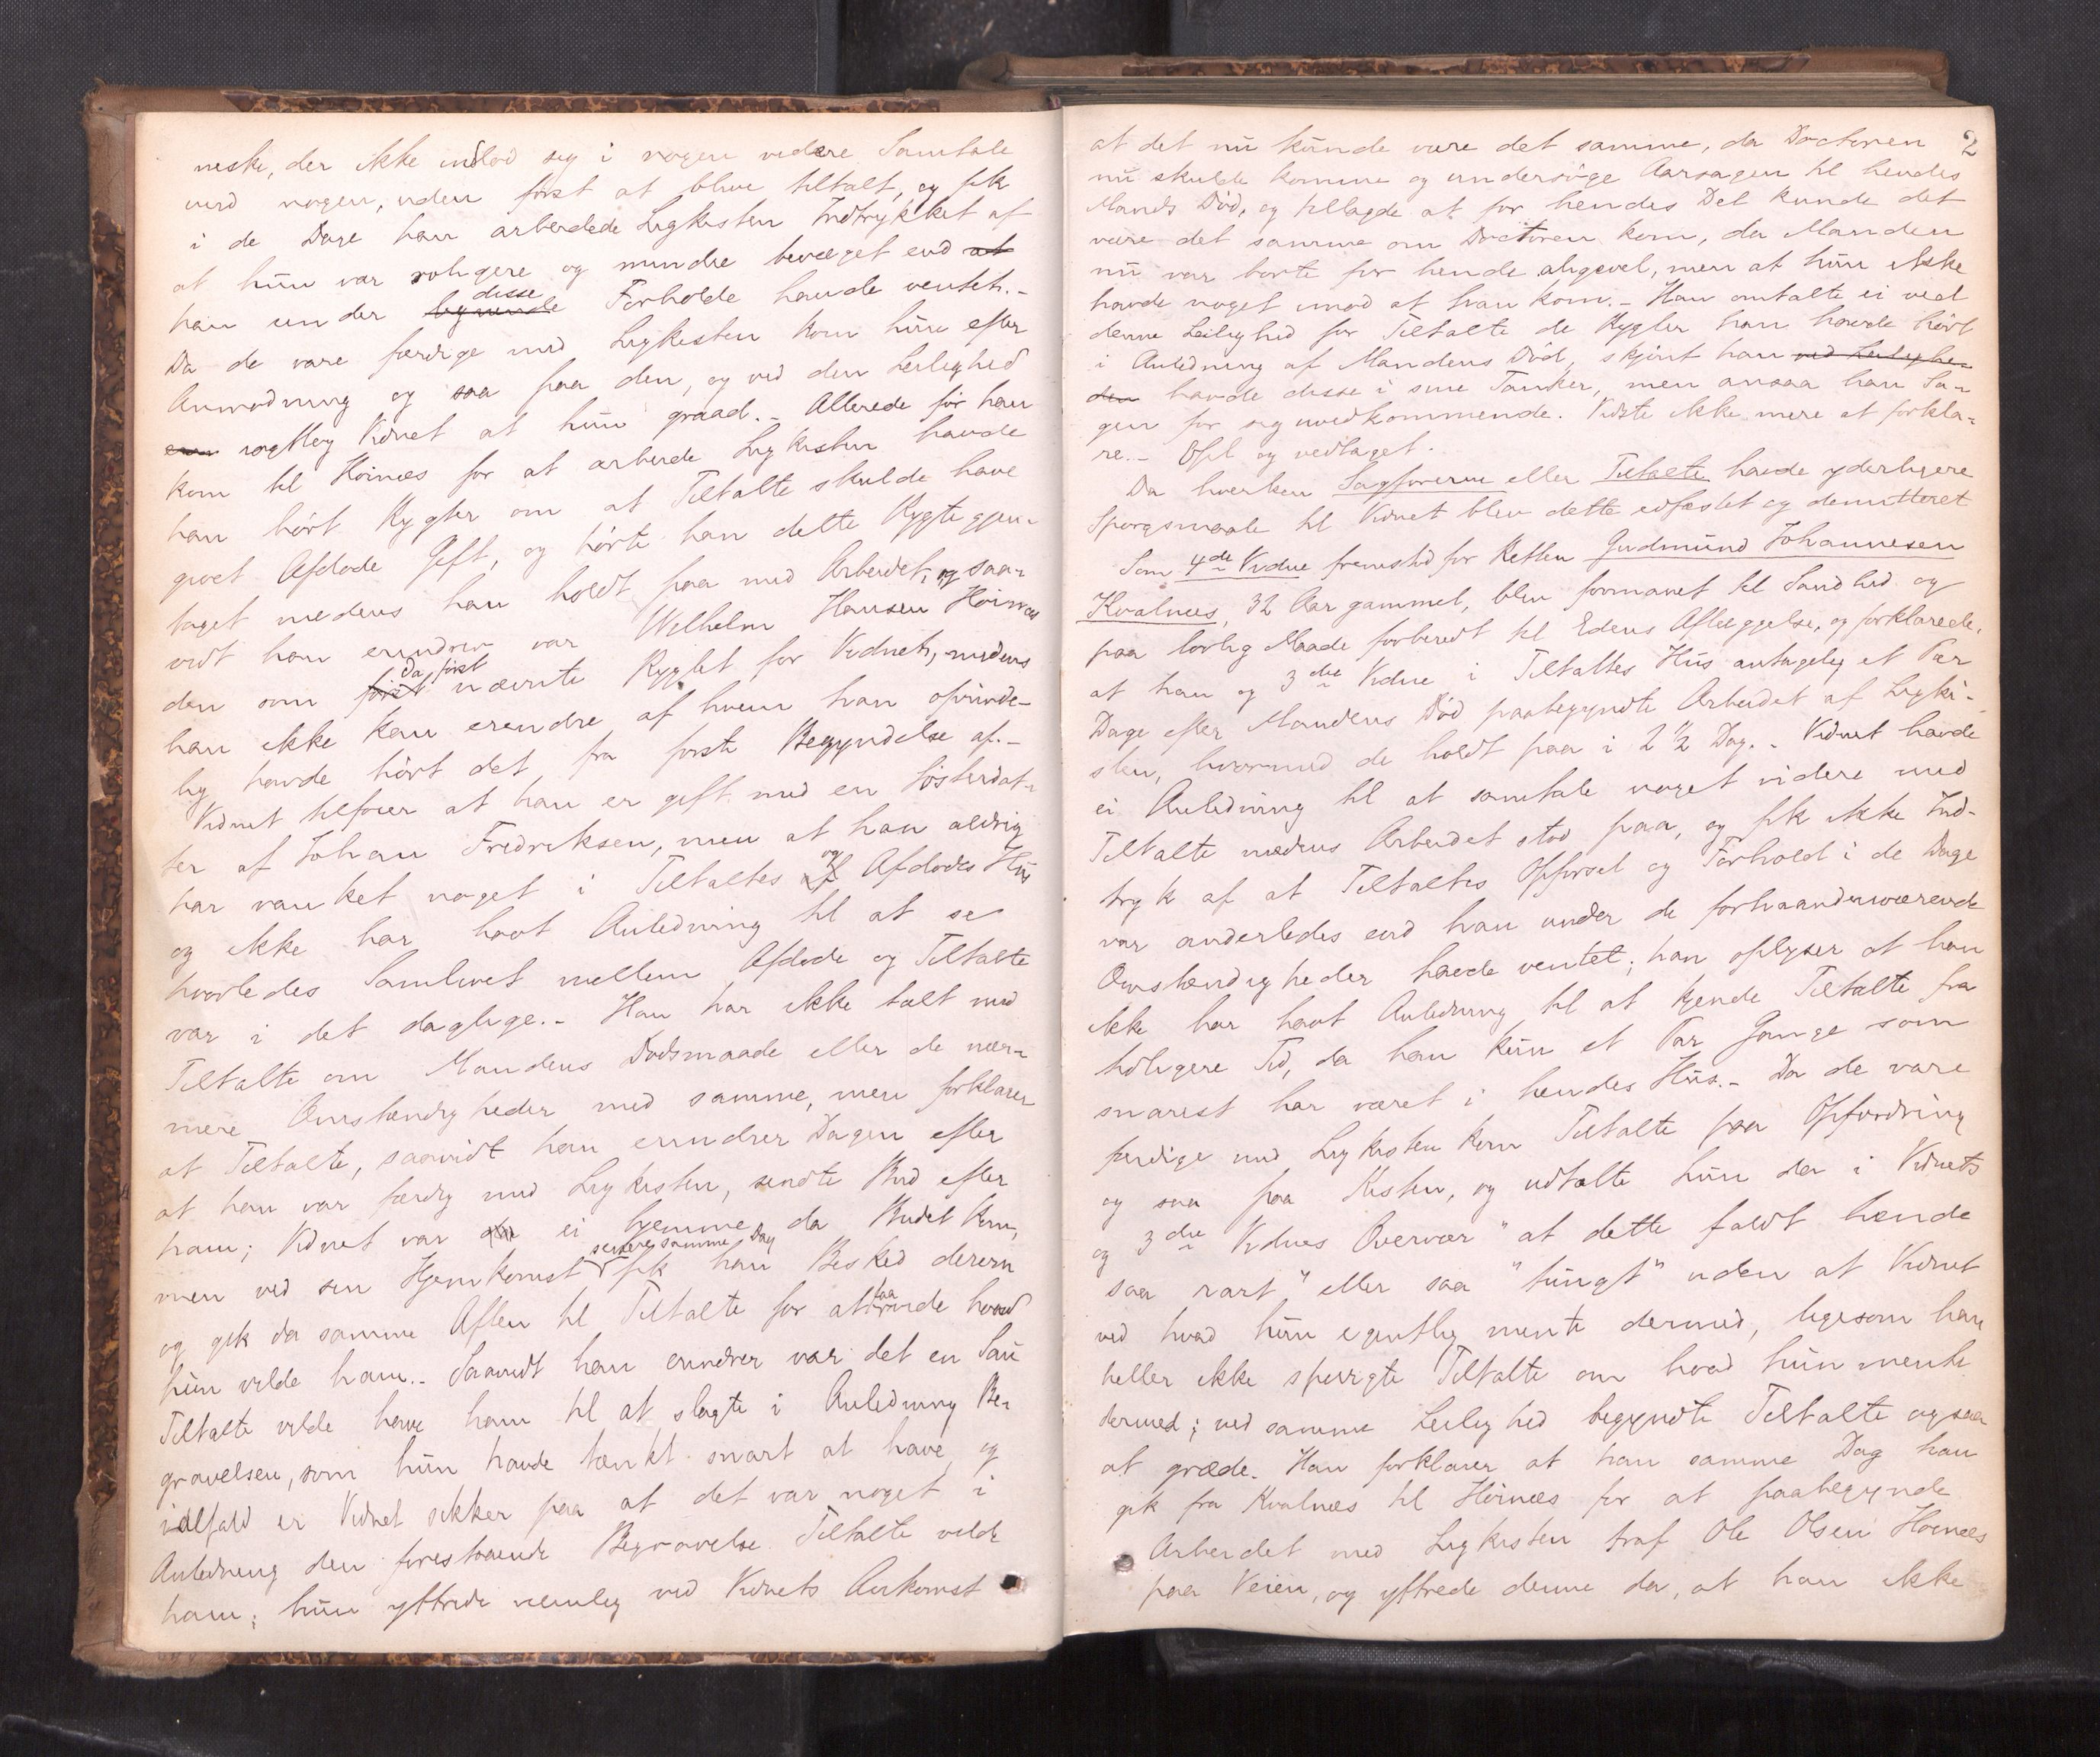 neske, der ikke indlod sig i nogen videre Samtale
med nogen, uden först at blive tiltalt, og fik
i de Dage han arbeidede Ligkisten Indtrykket af
at hun var roligere og mindre bevæget end at
han under disse Forholde havde ventet.-
Da de vare færdige med Ligkisten kom hun efter
Anmodning og saa paa den, og ved den Leilighed
iagttog Vidnet at hun graad.- Allerede för han
kom til Höinæs for at arbeide Ligkisten havde
han hört Rygter om at Tiltalte skulde have
givet Afdöde Gift, og hörte han dette Rygte gjen-
taget medens han holdt paa med Arbeidet, og saa-
vidt han erindrer var Wilhelm Hansen Höinæs
den som först da först nævnte Rygtet for Vidnet, medens
han ikke kan erindre af hvem han oprinde-
lig havde hört det fra förste Begyndelse af.-
Vidnet tilföier at han er gift med en Sösterdat-
ter af Johan Fredriksen, men at han aldrig
har vanket noget i Tiltaltes og Afdödes Hus
og ikke har havt Anledning til at se
hvorledes Samlivet mellem Afdöde og Tiltalte
var i det daglige.- Han har ikke talt med
Tiltalte om Mandens Dödsmaade eller de nær-
mere Omstændigheder med samme, men forklarer
at Tiltalte, saavidt han erindrer Dagen efter
at han var færdig med Ligkisten, sendte Bud efter
ham; Vidnet var ei hjemme da Budet kom,
men ved sin Hjemkomst senere samme Dag fik han Besked derom
og gik da samme Aften til Tiltalte for at faa vide hvad
hun vilde ham.- Saavidt han erindrer var det en Sau
Tiltalte vilde have ham til at slagte i Anledning Be-
gravelsen, som hun havde tænkt snart at have, og
ialfald er Vidnet sikker paa at det var noget i
Anledning den forestaaende Begravelse Tiltalte vilde
ham; hun yttrede nemlig ved Vidnets Ankomst
2
at det nu kunde være det samme, da Doctoren
nu skulde komme og undersöge Aarsagen til hendes
Mands Död, og tillagde at for hendes Del kunde det
være det samme om Doctoren kom, da Manden
nu var borte for hende aligevel, men at hun ikke
havde noget imod at han kom.- Han omtalte ei ved
denne Leilighed for Tiltalte de Rygter han havde hört
i Anledning af Mandens Död, skjönt han ved Leilighe-
den havde disse i sine Tanker, men ansaa han Sa-
gen for sig uvedkommende. Vidste ikke mere at forkla-
re.- Opl. og vedtaget.
Da hverken Sagförerne eller Tiltalte havde yderligere
Spørgsmaale til Vidnet blev dette edfæstet og demitteret
Som 4de Vidne fremstod for Retten Gudmund Johannesen
Kvalnæs, 32 Aar gammel, blev formanet til Sandhed og
paa lovlig Maade forberedt til Edens Aflæggelse, og forklarede,
at han og 3die Vidne i Tiltaltes Hus antagelig et Par
Dage efter Mandens Död paabegyndte Arbeidet af Ligki-
sten, hvormed de holdt paa i 2 1/2 Dag.- Vidnet havde
ei Anledning til at samtale noget videre med
Tiltalte medens Arbeidet stod paa, og fik ikke Ind-
tryk af at Tiltaltes Opförsel og Forhold i de Dage
var anderledes end han under de forhaandenværende
Omstændigheder havde ventet; han oplyser at han
ikke har havt Anledning til at kjende Tiltalte fra
tidligere Tid, da han kun et Par Gange som
snarest har været i hendes Hus.- Da de vare
færdige med Ligkisten kom Tiltalte paa Opfordring
og saa paa Kisten, og udtalte hun da i Vidnets
og 3die Vidnes Overvær "at dette faldt hende
saa rart" eller saa "tungt" uden at Vidnet
ved hvad hun egentlig mente dermed, ligesom han
heller ikke spurgte Tiltalte om hvad hun mente
dermed; ved samme Leilighed begyndte Tiltalte ogsaa
at græde. Han forklarer at han samme Dag han
gik fra Kvalnæs til Höinæs for at paabegynde
Arbeidet med Ligkisten traf Ole Olsen Höinæs
paa Veien, og yttrede denne da, at han ikke